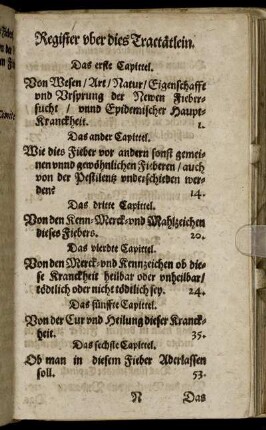 Register vber dies Tractätlein.
Das erste Capittel.
Von Wesen / Art / Natur / Eigenschafft
vnd Vrsprung der Newen Fieber-
sucht / vnnd Epidemischer Haupt-
Kranckheit. 1.
Das ander Capittel.
Wie dies Fieber vor andern sonst gemei-
nen vnnd gewöhnlichen Fieberen / auch
von der Pestilentz vnderschieden wer-
den? 14.
Das dritte Capittel.
Von den Kenn-Merck-vnd Mahlzeichen
dieses Fiebers. 20.
Das vierdte Capittel.
Von den Merck-vnd Kennzeichen ob die-
se Kranckheit heilbar oder vnheilbar /
tödtlich oder nicht tödtlich sey. 24.
Das fünffte Capittel.
Von der Cur vnd Heilung dieser Kranck-
heit. 35.
Das sechste Capittel.
Ob man in diesem Fieber Aderlassen
soll. 53.
N Das